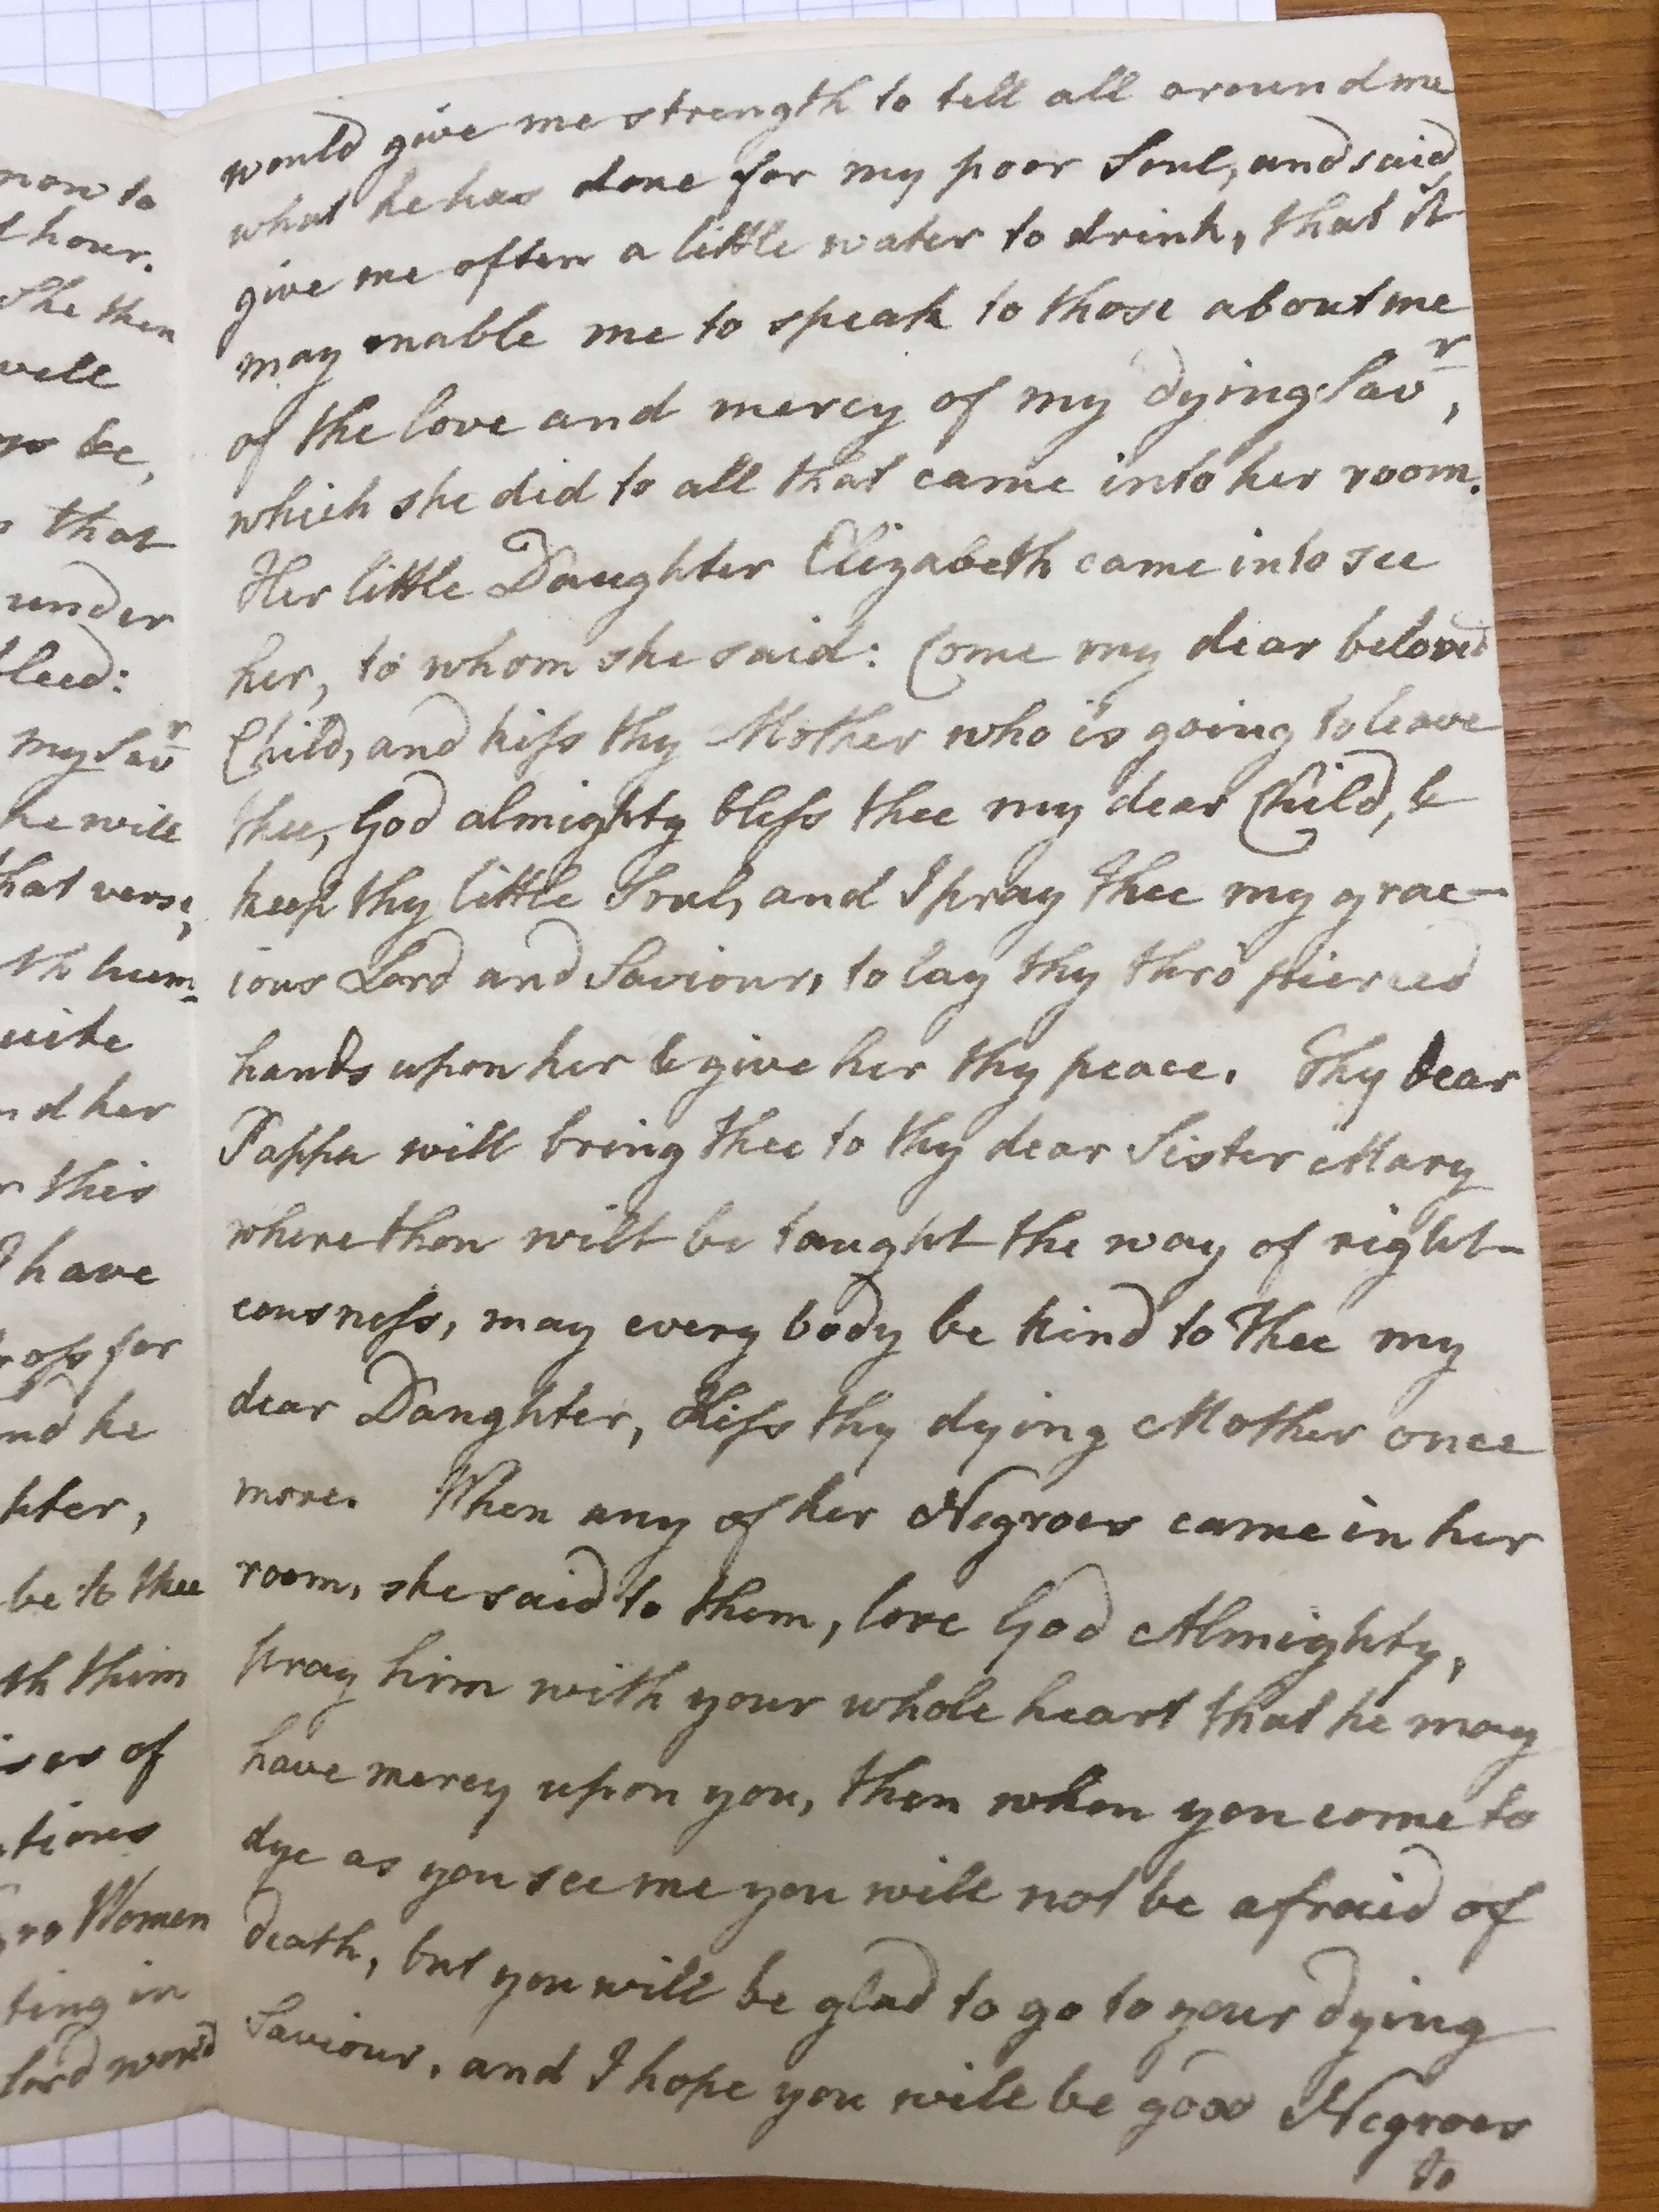 now to
t hour.
She then
well
be,
that
under
bleed:
my Savr
he will
that verse,
th hum-
quite
nd her
r this
I have
ross for
nd he
hter,
be to thee
th thim
ises of
tions
gro Women
ting in
Lord world
would give me strength to tell all around me
what he has done for my poor Soul, and said
give me often a little water to drink, that it
may enable me to speak to those about me
of the love and mercy of my dying Savr,
which she did to all that came into her room.
Her little Daughter Elizabeth came in to see
her, to whom she said: Come my dear beloved
Child, and kiss thy Mother who is going to leave
thee, God almighty bless thee my dear Child, &
keep thy little Soul, and I pray thee my grac-
ious Lord and Saviour, to lay thy thro' pierced
hands upon her & give her thy peace. Thy dear
Pappa will bring thee to thy dear Sister Mary
where thou wilt be taught the way of right-
eousness, may every body be kind to thee my
dear Daughter, Kiss thy dying Mother once
more. When any of her Negroes came in her
room, she said to them, love God Almighty,
pray him with your whole heart that he may
have mercy upon you, then when you come to
dye as you see me you will not be afraid of
death, but you will be glad to go to your dying
Saviour, and I hope you will be good Negroes
to